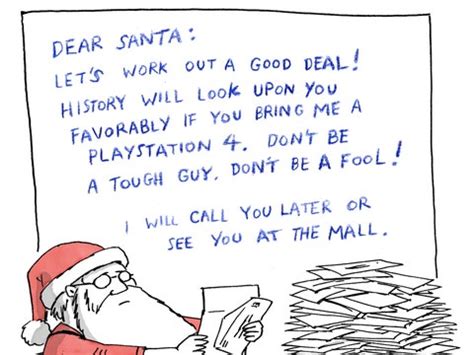 DEAR SANTA:
LET'S WORK OUT A GOOD DEAL!
HISTORY WILL LOOK UPON YOU
FAVORABLY IF YOU BRING ME A
PLAYSTATION 4. DON'T BE
A TOUGH GUY. DON'T BE A FOOL!
I WILL CALL YOU LATER OR
SEE YOU AT THE MALL.